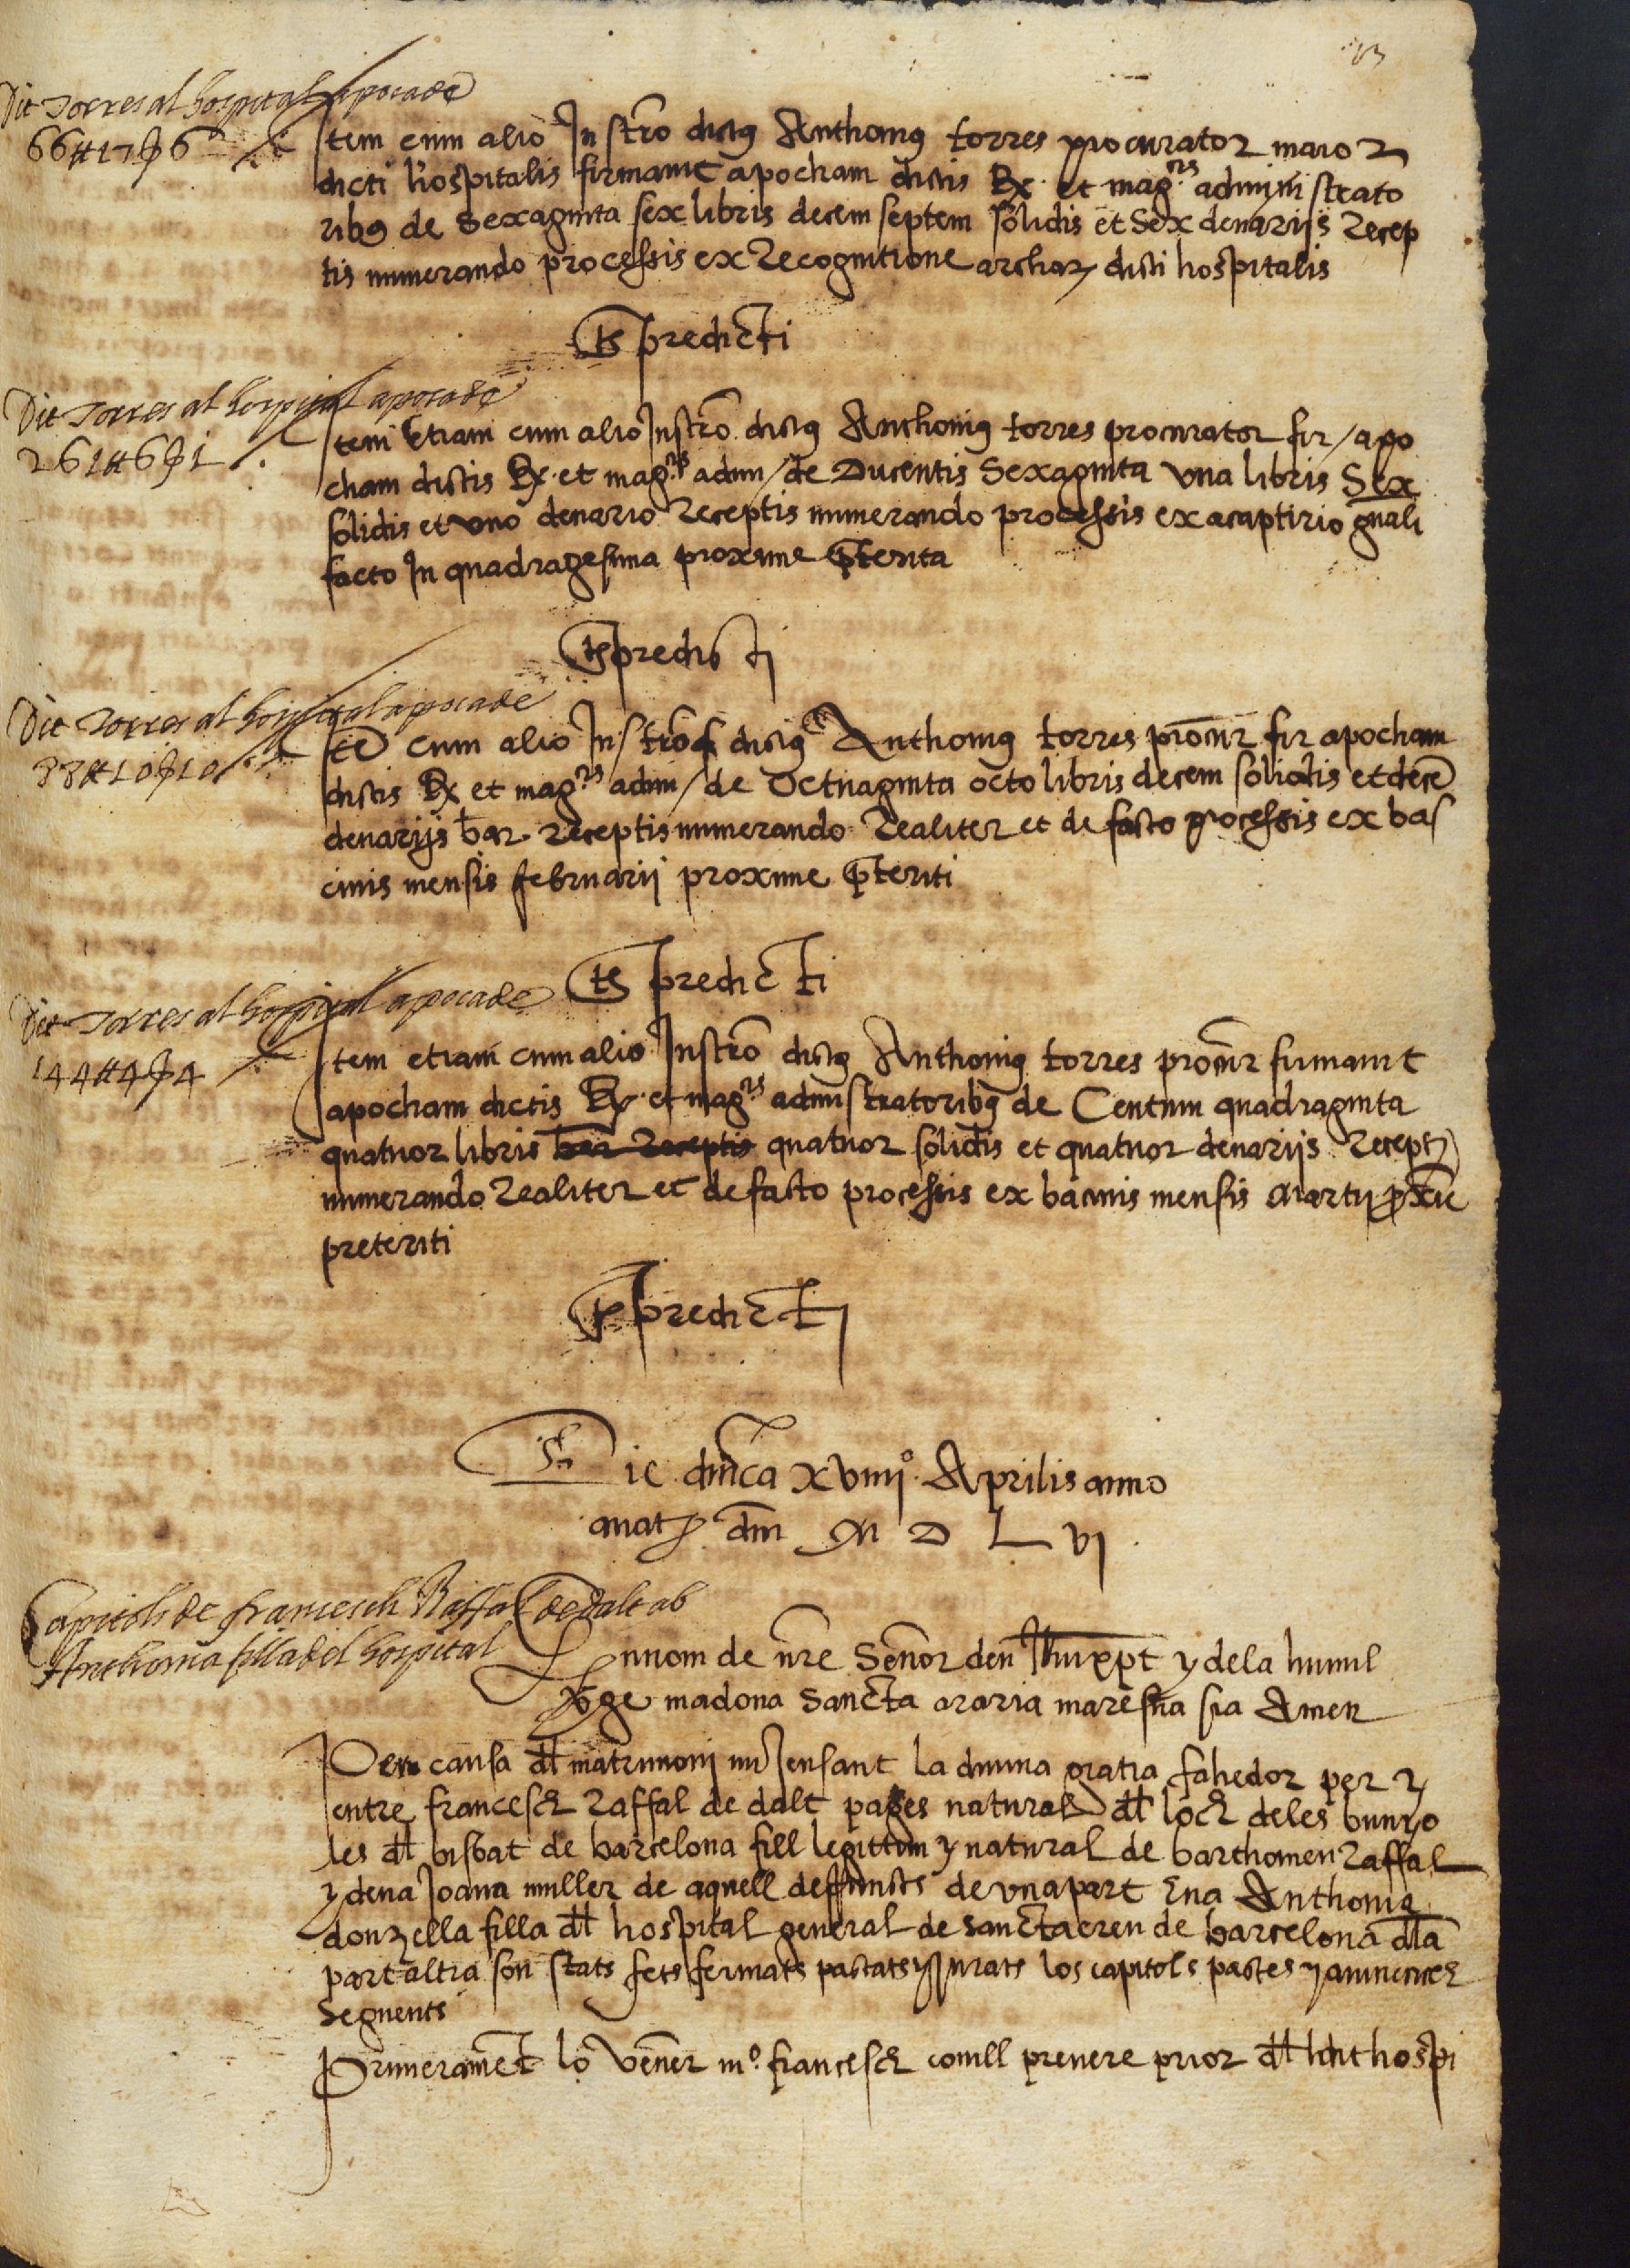 Dit Torres al hospital apoca de
66 ℔ 17 ẞ 6
Item cum alio Instro dictus Anthonius torres procurator maior
dicti hospitalis firmavit apocham dictis Rx. et mag.cis administrato
ribus de Sexaginta sex libris decem septem solidis et Sex denariis recep
tis numerando processis ex recognitione archar dicti hospitalis
ts predicti
Dit Torres al hospital apoca de
261 ℔ 6 ẞ 1
Item etiam cum alio Instro dictus Anthonius torres procurator fir/ apo
cham dictis Rx. et mag.cis adm/ de Ducentis Sexaginta una libris Sex
solidis et uno denario receptis numerando processis ex acaptirio gnali
facto In quadragesima proxime pterita
ts predicti
Dit Torres al hospital apoca de
88 ℔ 10 ẞ 10
Ite cum alio Instro dictus Anthonius torres procur fir apocham
dictis Rx et mag.cis adm/ de Octuaginta octo libris decem solidis et dece
denariis bar receptis numerando realiter et de facto processis ex bas
cinis mensis februarii proxime pteriti
ts predicti
Dit Torres al hospital apoca de
144 ℔ 4 ẞ 4
Item etiam cum alio Instro dictus Anthonius torres procur firmavit
apocham dictis Rx. et mag.cis administratoribus de Centum quadraginta
quatuor libris bar receptis quatuor solidis et quatuor denariis recept
numerando realiter et de facto processis ex bacinis mensis Martii proxie
preteriti
ts predicti
Die dnica xviiii° Aprilis anno
a nat dni M D L vi
Capitols de francesch Raffal de dalt ab
Anthonia filla del hospital
En nom de nre Senor deu Jhu xpt y dela humil
vge madona Sancta Maria mare sua sia Amen
Per causa del matrimoni mijensant la divina gratia fahedor per y
entre francesch raffal de dalt pages natural del loch deles bunyo
les del bisbat de barcelona fill legittim y natural de barthomeu raffal
y dena Joana muller de aquell deffuncts de una part E na Anthonia
donzella filla del hospital general de sancta creu de barcelona dla
part altra son stats fets fermats pactats y jurats los capitols pactes y avinences
Seguents
Primerament lo vener m° francesch comll prevere prior del dit hospi